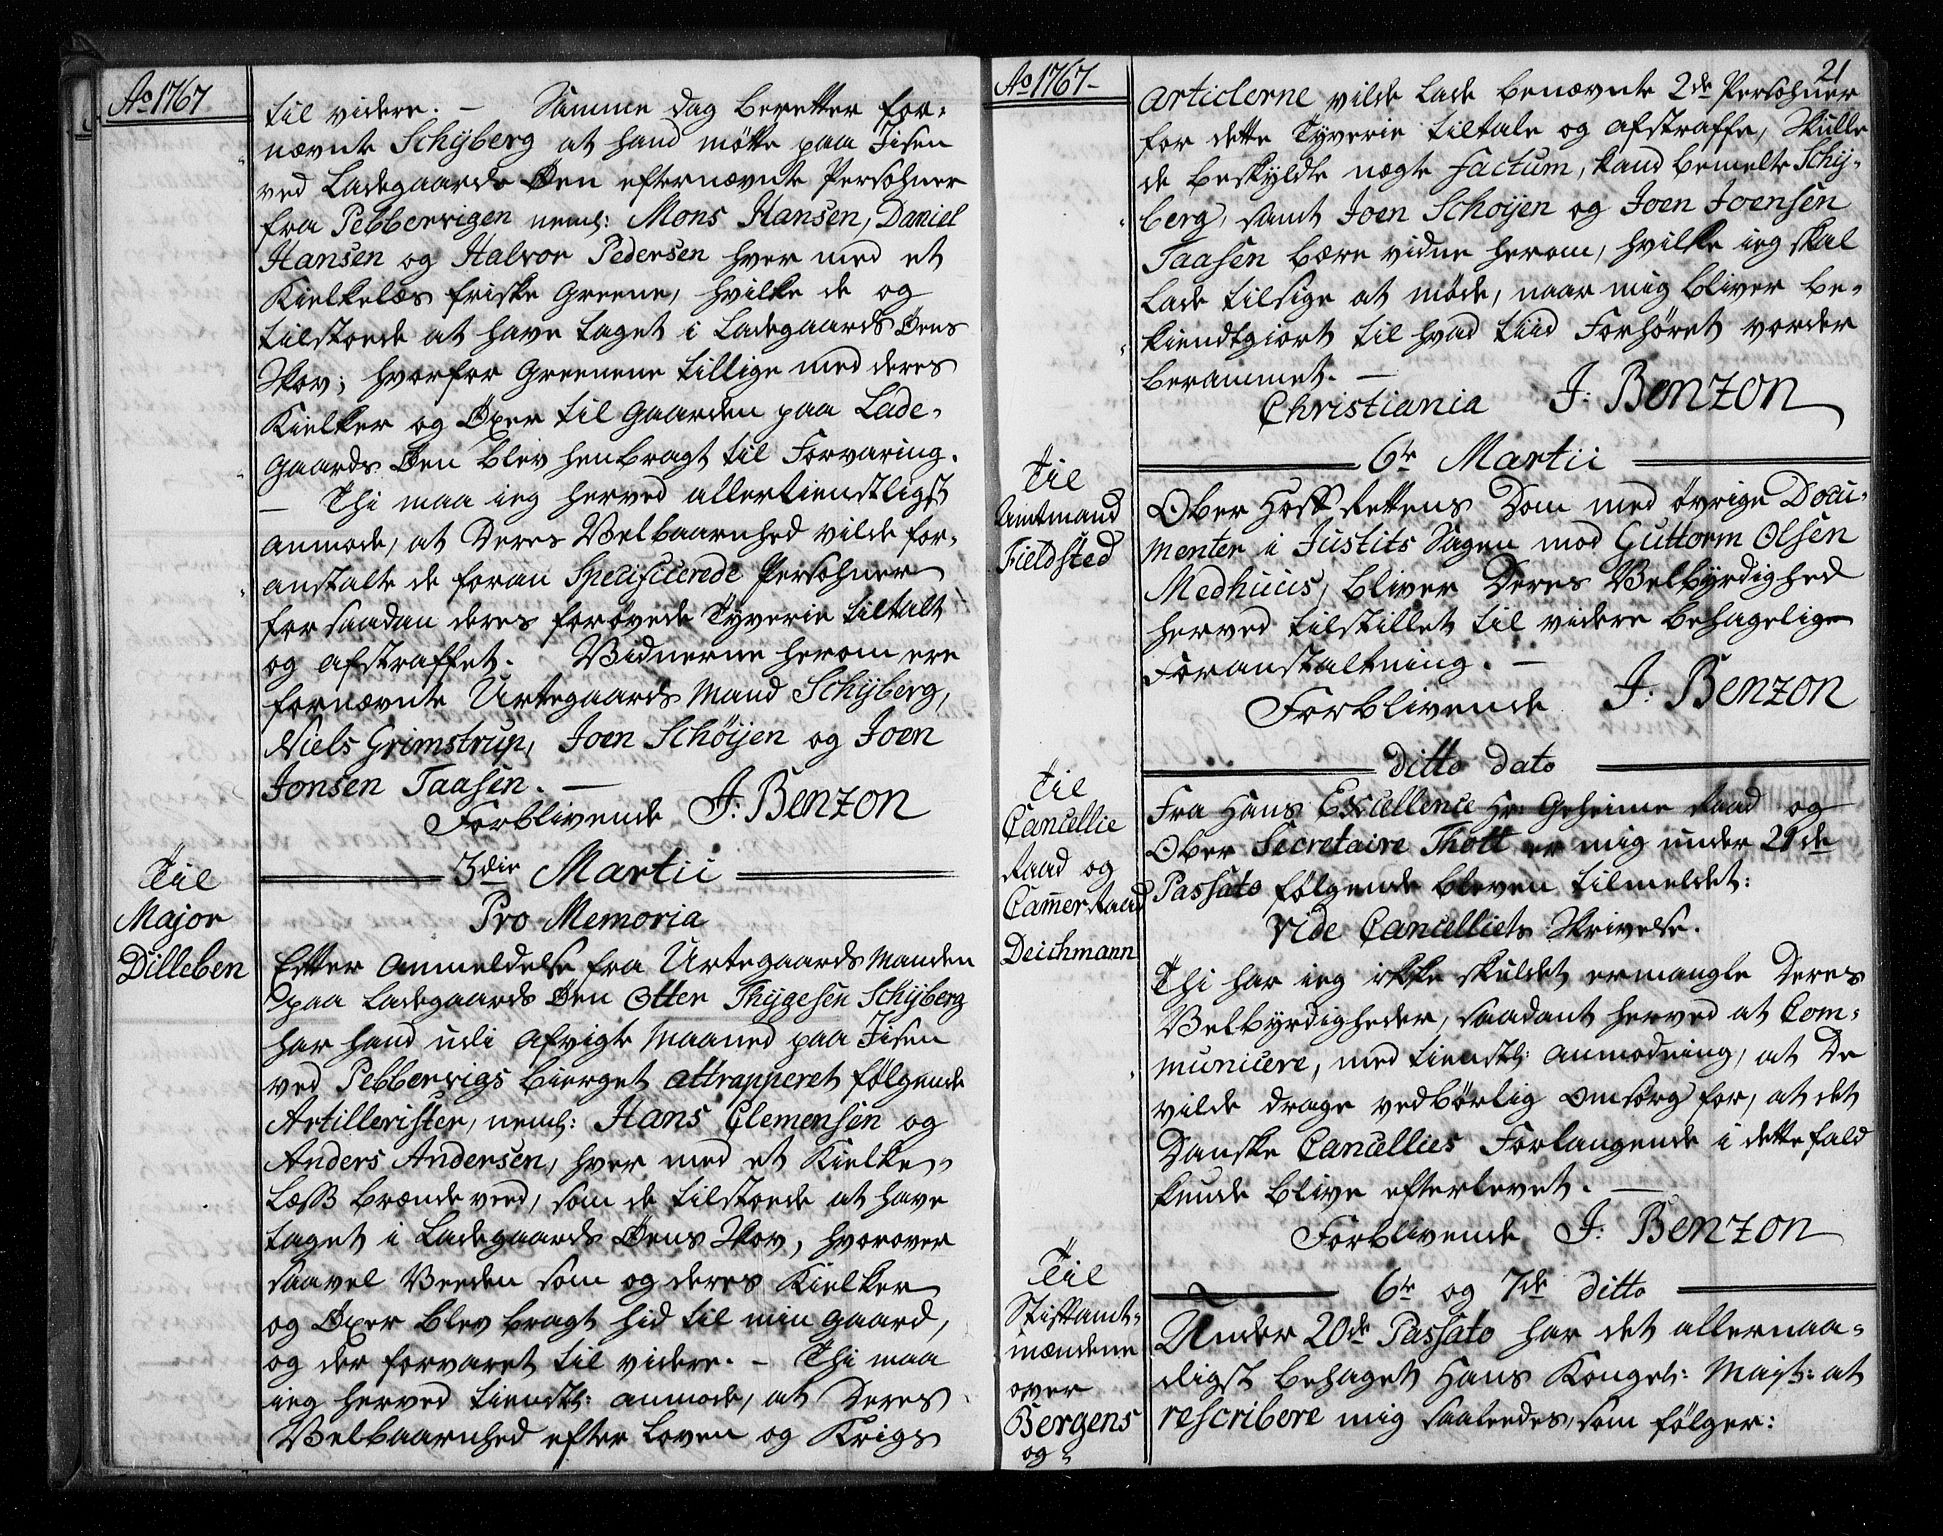 Ao 1767
til videre. – Samme dag beretter for-
nævnte Schÿberg at hand mötte paa Jisen
ved Ladegaards Øen efternævnte Persohner
fra Pebbervigen neml: Mons Hansen, Daniel
Hansen og Halvor Pedersen hver med et
Kielkelæs friske Greene, hvilke de og
tilstoede at have taget i Ladegaards Øens
Skov; hvorfor Greenene tillige med deres
Kielker og Øxer til Gaarden paa Lade-
gaards Øen blev henbragt til Forvaring.
– Thi maa ieg herved allertienstligst
anmode, at Deres Velbaarnhed vilde for-
anstalte de foran Specificerede Persohner
for saadan deres forøvede Tyverie tiltalt
og afstraffet. Vidnerne herom ere
fornævnte Urtegaards Mand Schÿberg,
Niels Grimstrup, Joen Schöÿen og Joen
Jonsen Taasen. –
Forblivende J: Benzon
3die Martii
Til
Major
Dilleben
Pro Memoria
Efter Anmeldelse fra Urtegaards Manden
paa Ladegaards Øen Otter Thÿgesen Schÿberg
har hand udi afvigte Maaned paa Jisen
ved Pebbervigs bierget attrapperet følgende
Artillerister, neml: Hans Clemensen og
Anders Andersen, hver med et Kielke-
læss brændeveed, som de tilstoede at have
taget i Ladegaards Øens Skov, hvorover
saavel Veeden som og deres Kielker
og Øxer blev bragt hid til min gaard,
og der forvaret til videre. – Thi maa
ieg herved tienstl: anmode, at Deres
Velbaarnhed efter Loven og Krigs
Ao 1767 –
21
Articlerne vilde lade benævnte 2de Persohner
for dette Tyverie tiltale og afstraffe, Skulle
de beskyldte nægte factum, kand bemelte Schÿ-
berg, samt Joen Schoÿen og Joen Joensen
Taasen bære vidne herom, hvilke ieg skal
lade tilsige at møde, naar mig bliver be-
kiendtgiort til hvad tiid Forhøret vorder
berammet. –
Christiania J: Benzon
6te Martii
Til
Amtmand
Fieldsted
Ober Hoff Rettens Dom med övrige Docu-
menter i Justits Sagen mod Guttorm Olsen
Medhuus, bliver Deres Velbyrdighed
herved tilstillet til videre behagelige
Foranstaltning. –
Forblivende J: Benzon
ditto dato
Til
Cancellie
Raad og
Cammer Raad
Deichmann
Fra Hans Excellence Hr Geheime Raad og
Ober Secretaire Thott er mig under 21de
Passato følgende bleven tilmeldet:
vide Cancelliets Skrivelse.
Thi har ieg ikke skuldet ermangle Deres
Velbyrdigheder, saadant herved at Com-
municere, med tienstl: anmodning, at De
vilde drage vedbörlig Omsorg for, at det
Danske Cancellies Forlangende i dette fald
kunde blive efterlevet. –
Forblivende J: Benzon
6te og 7de ditto
Til
Stiftamt-
mændene
over
Bergens
og
Under 20de Passato har det allernaa-
digst behaget Hans Kongel: Mayt: at
rescribere mig saaledes, som følger: